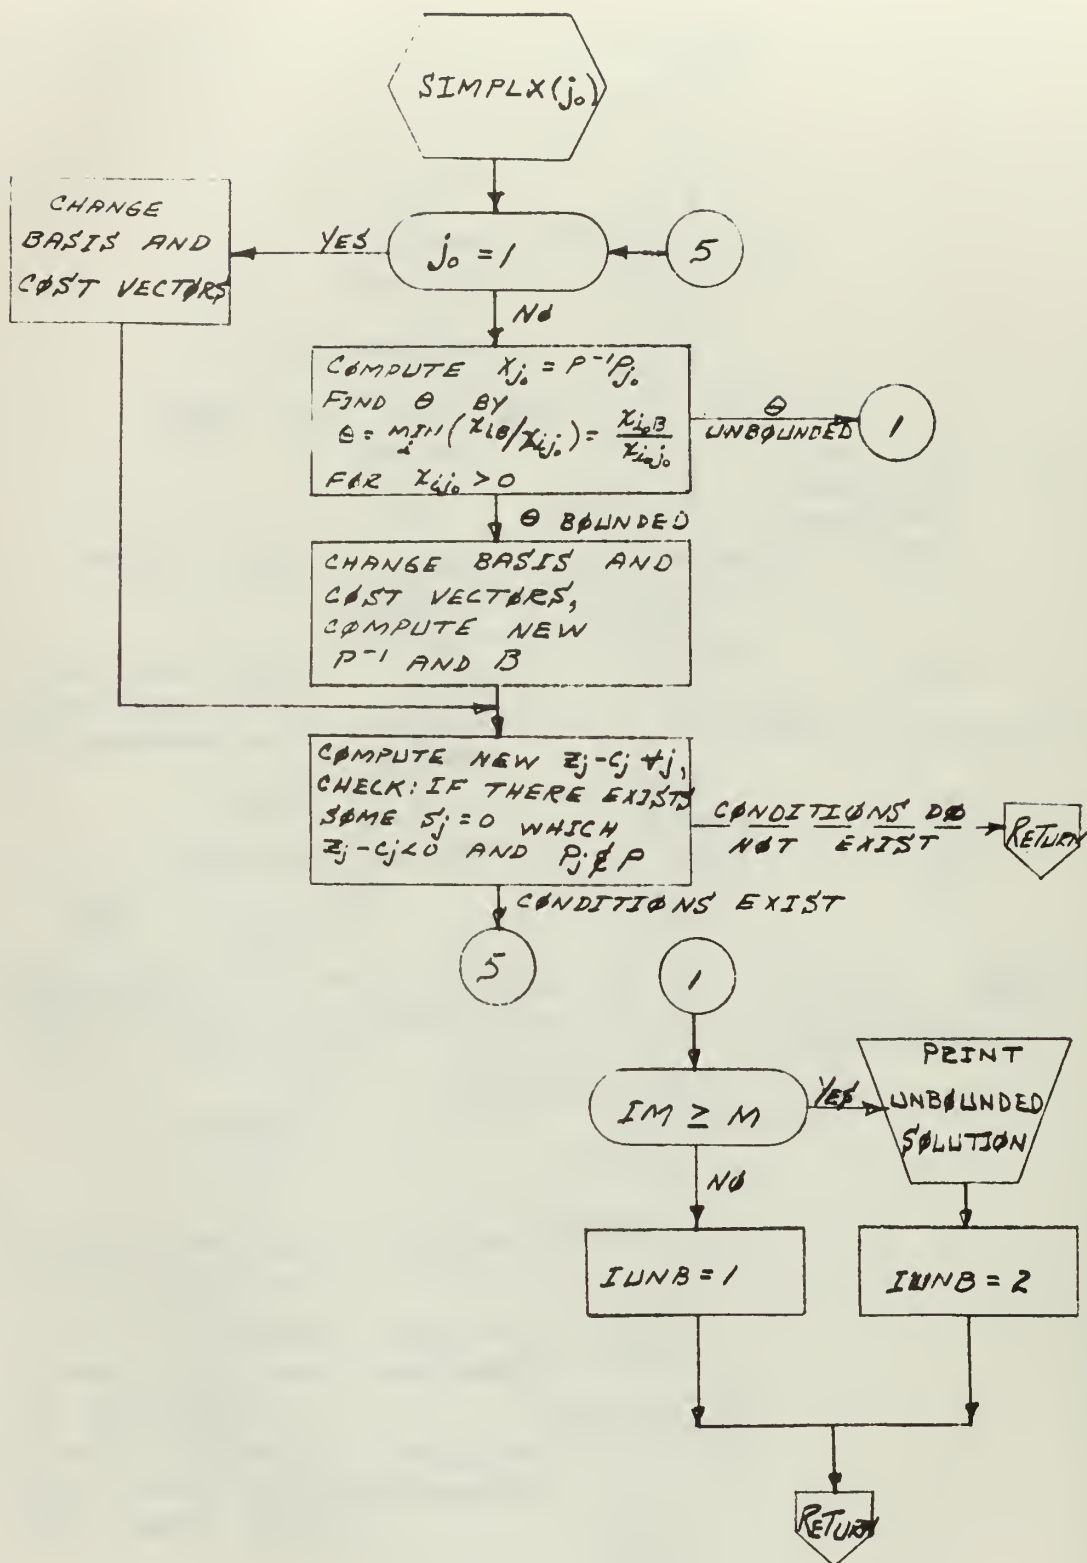 SIMPLX(j₀)
CHANGE
BASIS AND
CØST VECTØRS
YES
j₀ = 1
5
NØ
CØMPUTE X_j₀ = P⁻¹P_j₀
FIND Θ BY
Θ = MIN_i (x_iB/x_ij₀) = x_i₀B/x_i₀j₀
FØR x_ij₀ > 0
Θ
UNBØUNDED
1
Θ BØUNDED
CHANGE BASIS AND
CØST VECTØRS,
CØMPUTE NEW
P⁻¹ AND B
CØMPUTE NEW z_j-c_j ∀j,
CHECK: IF THERE EXISTS
SØME S_j = 0 WHICH
z_j-c_j<0 AND P_j ∉ P
CØNDITIØNS DØ
NØT EXIST
RETURN
CØNDITIØNS EXIST
5
1
IM ≥ M
YES
PRINT
UNBØUNDED
SØLUTIØN
NØ
IUNB = 1
IUNB = 2
RETURN